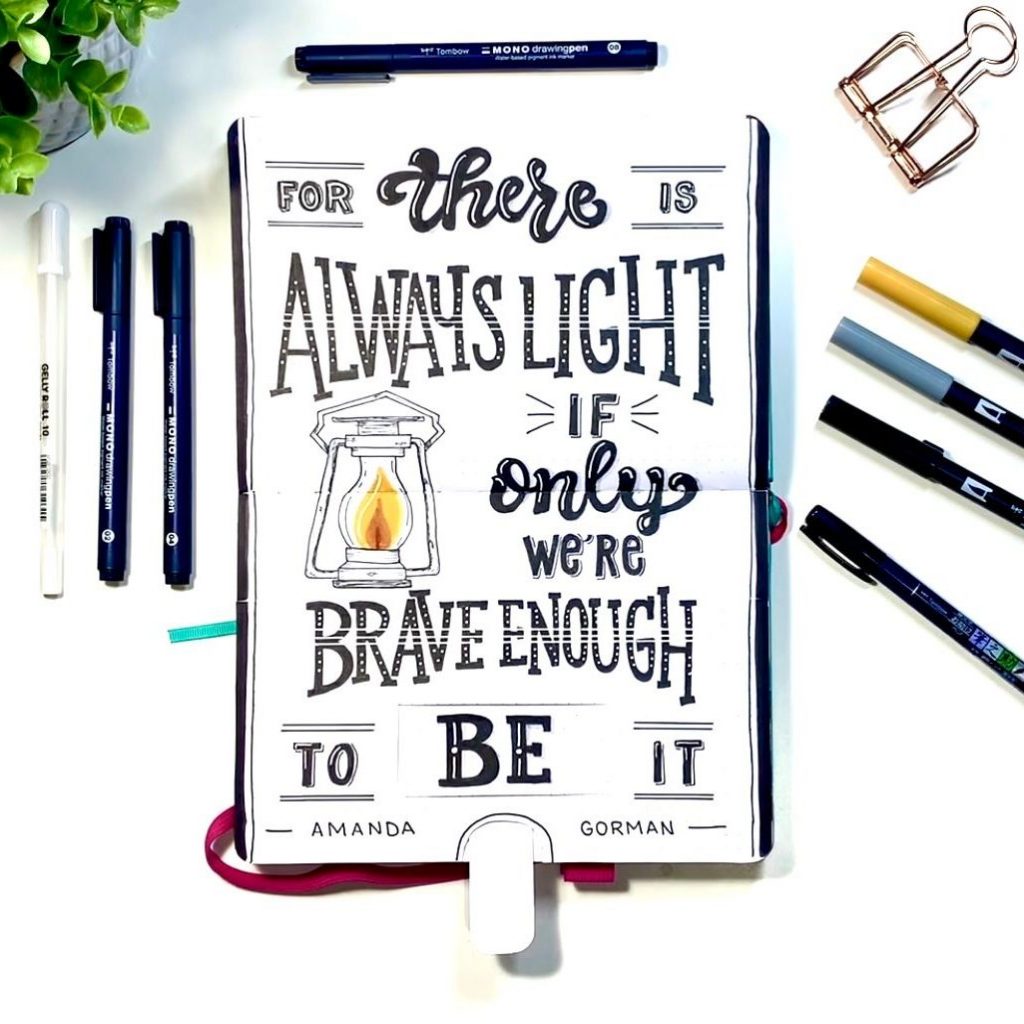 Tombow MONO drawingpen 08
Water-based pigment ink marker
FOR there IS
ALWAYS LIGHT
IF
only
WE'RE
BRAVE ENOUGH
TO BE IT
— AMANDA GORMAN —
GELLY ROLL 10
Tombow MONO drawingpen 02
Tombow MONO drawingpen 04